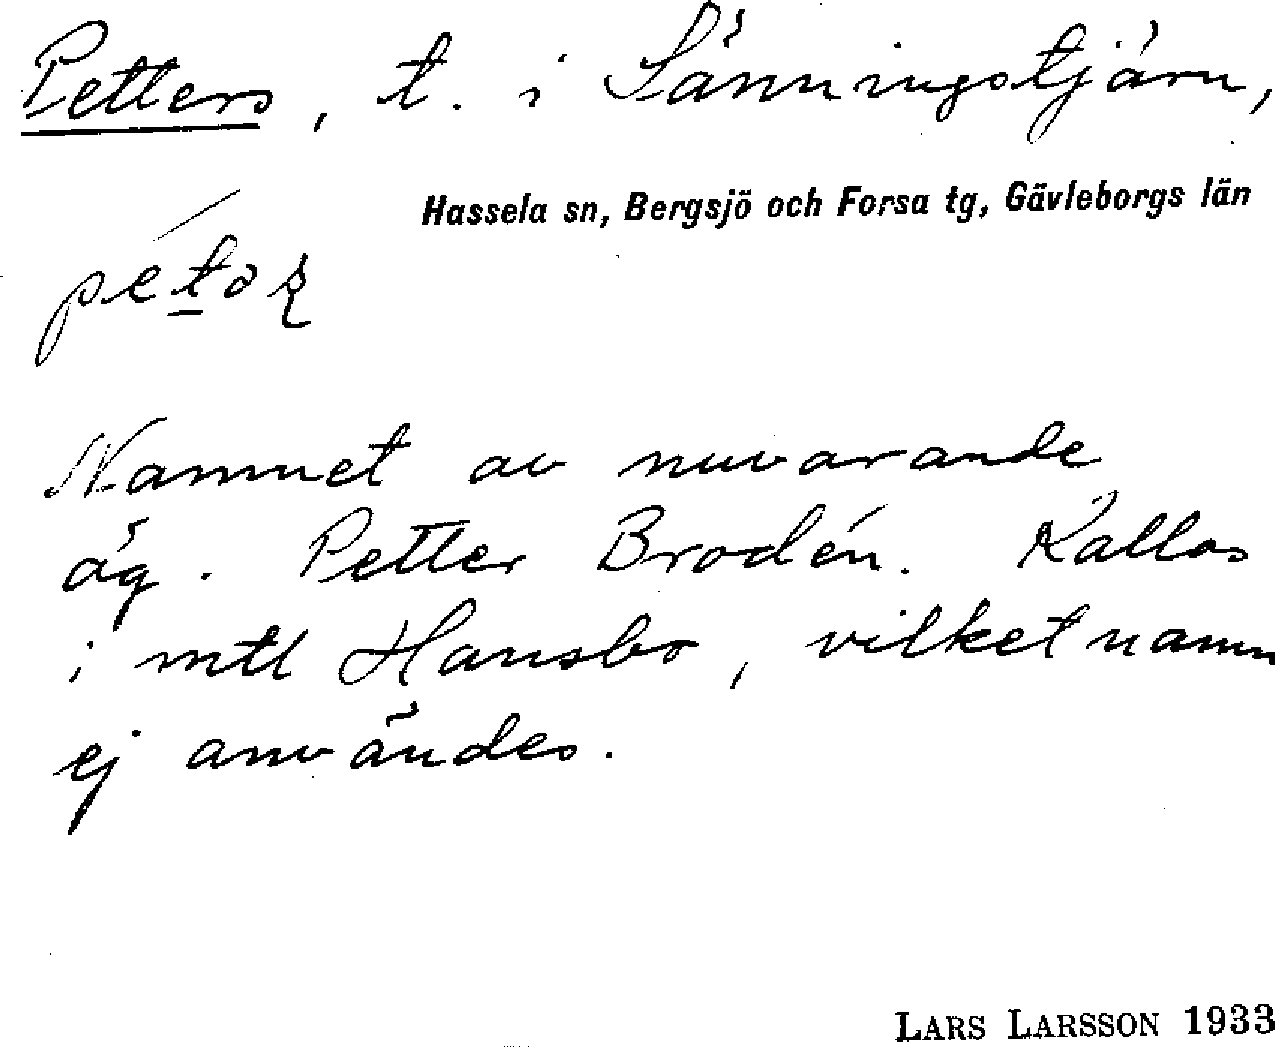 Petters, t. i Sänningstjärn,
Hassela sn, Bergsjö och Forsa tg, Gävleborgs län
Namnet av nuvarande
äg. Petter Brodén. Kallas
i mtl Hansbo, vilket namn
ej användes.
LARS LARSSON 1933